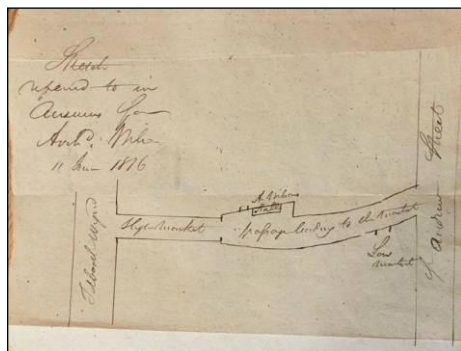 Sketch
referred to in
Answers for
Archd. Wilson
11 June 1816
A. Wilsons
Stall
High market
passage leading to the market
Low
market
St Andrew Street